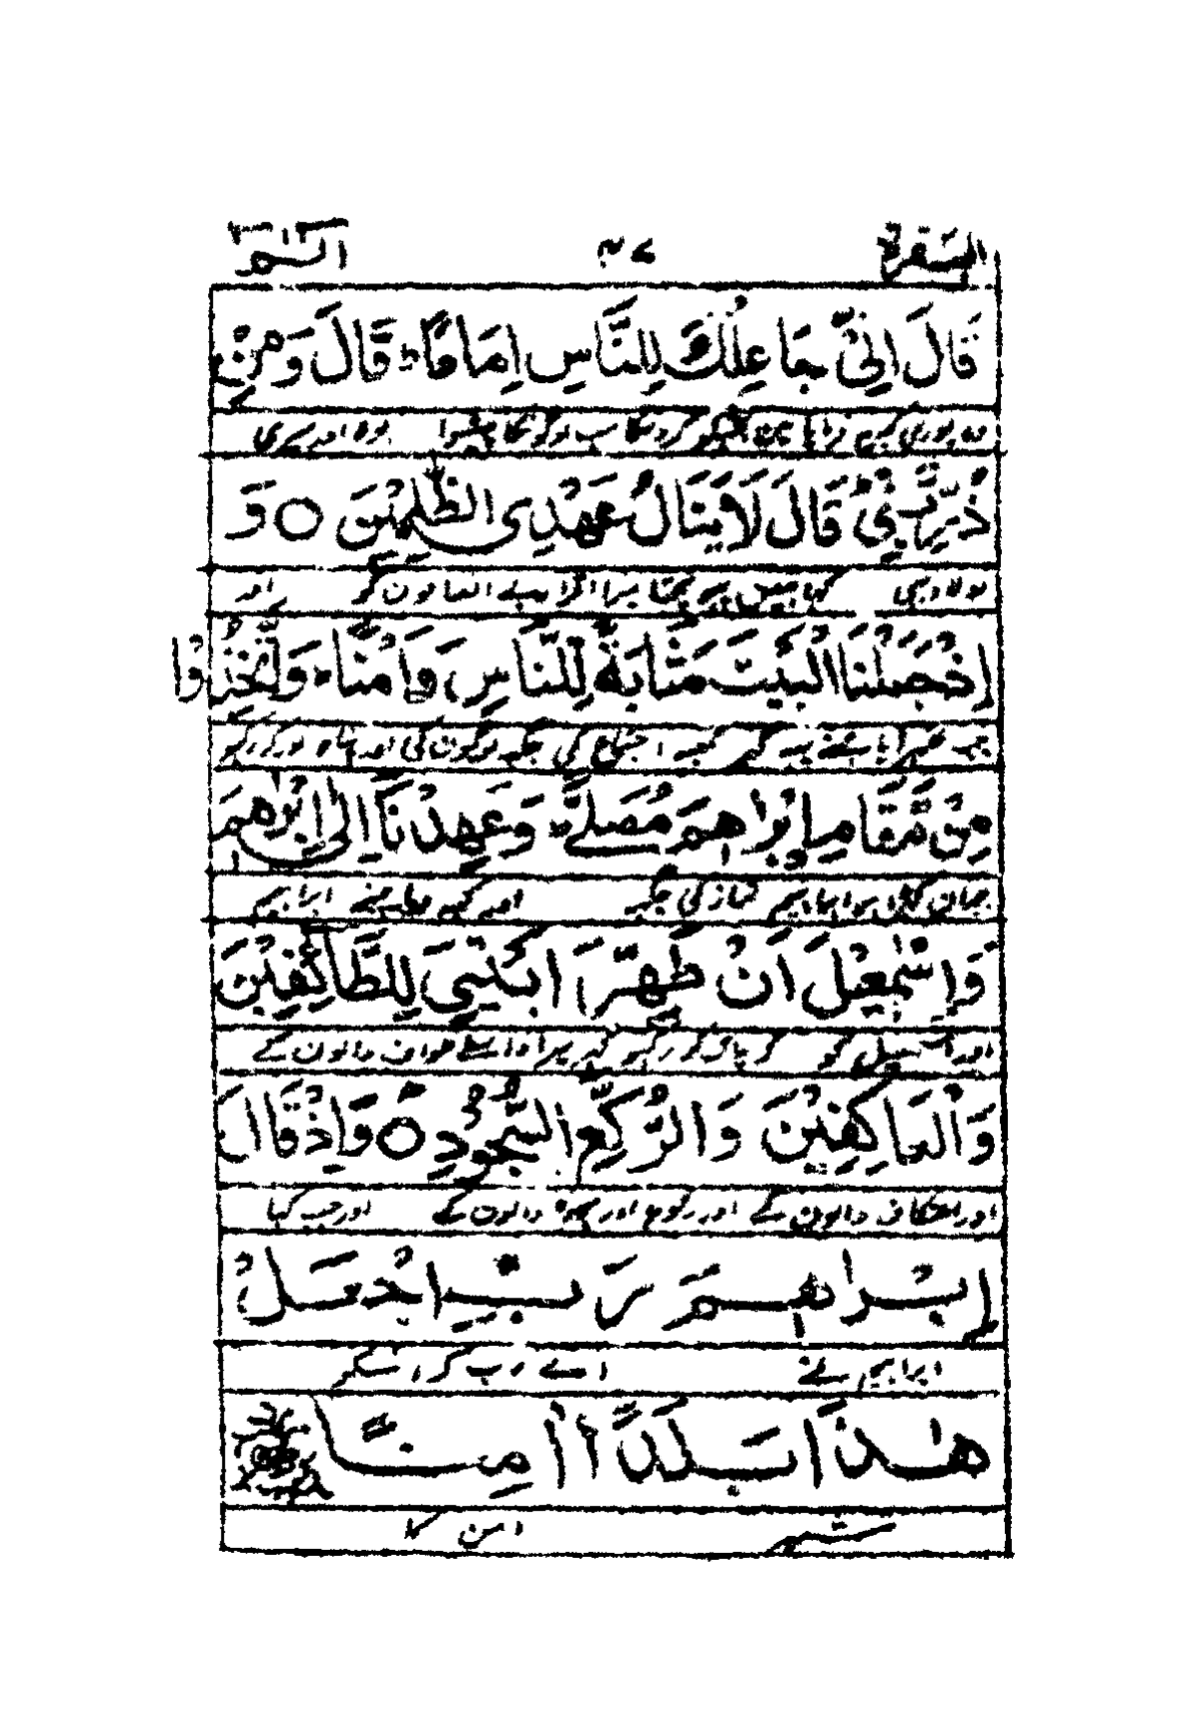 البقرة ٢٧ الٓمّٓ
قَالَ اِنِّیْ جَاعِلُكَ لِلنَّاسِ اِمَامًا ؕ قَالَ وَمِنْ
بولا اور میری
ذُرِّیَّتِیْ ؕ قَالَ لَا یَنَالُ عَهْدِی الظّٰلِمِیْنَ ○ وَ
کہا نہیں میرا اقرار بے انصافون کو اور
اِذْ جَعَلْنَا الْبَیْتَ مَثَابَةً لِّلنَّاسِ وَاَمْنًا ؕ وَاتَّخِذُوْا
جب یہ گھر کعبہ اجتماع کی جگہ لوگون کی اور پناہ اور کر رکھو
مِنْ مَّقَامِ اِبْرٰهٖمَ مُصَلًّی ؕ وَعَهِدْنَاۤ اِلٰۤی اِبْرٰهٖمَ
جہان کھڑا ہوا ابراہیم نماز کی جگہ اور کہہ دیا ہمنے ابراہیم
وَاِسْمٰعِیْلَ اَنْ طَهِّرَا بَیْتِیَ لِلطَّآئِفِیْنَ
اور اسمعیل کو کہ پاک کر رکھو گھر میرا واسطے طواف والون کے
وَالْعٰكِفِیْنَ وَالرُّكَّعِ السُّجُوْدِ ○ وَاِذْ قَالَ
اور اعتکاف والون کے اور رکوع اور سجدہ والون کے اور جب کہا
اِبْرٰهٖمُ رَبِّ اجْعَلْ
ابراہیم نے اے رب کر اسکو
هٰذَا بَلَدًا اٰمِنًا
شہر امن کا